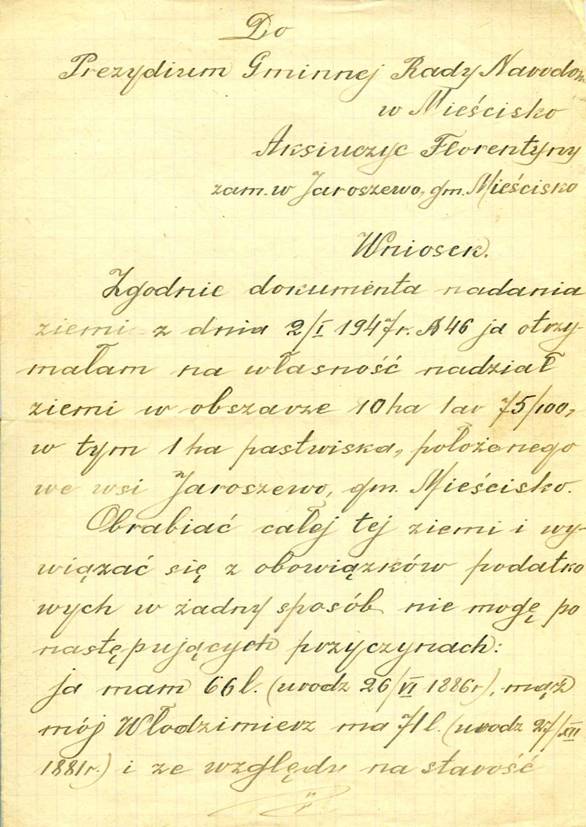 Do
Prezydium Gminnej Rady Narodow.
w Mieścisko
Aksiuczyc Florentyny
zam. w Jaroszewo, gm. Mieścisko
Wniosek.
Zgodnie dokumenta nadania
ziemi z dnia 2/I 1947r. № 46 ja otrzy-
małam na własność nadział
ziemi w obszarze 10 ha 1 ar 75/100,
w tym 1 ha pastwiska, położonego
we wsi Jaroszewo, gm. Mieścisko.
Obrabiać całej tej ziemi i wy-
wiązać się z obowiązków podatko
wych w żadny sposób nie mogę po
następujących przyczynach:
ja mam 66 l. (urodz 26/VI 1886r), mąż
mój Włodzimierz ma 71 l. (urodz 27/XII
1881r.) i ze względu na starość